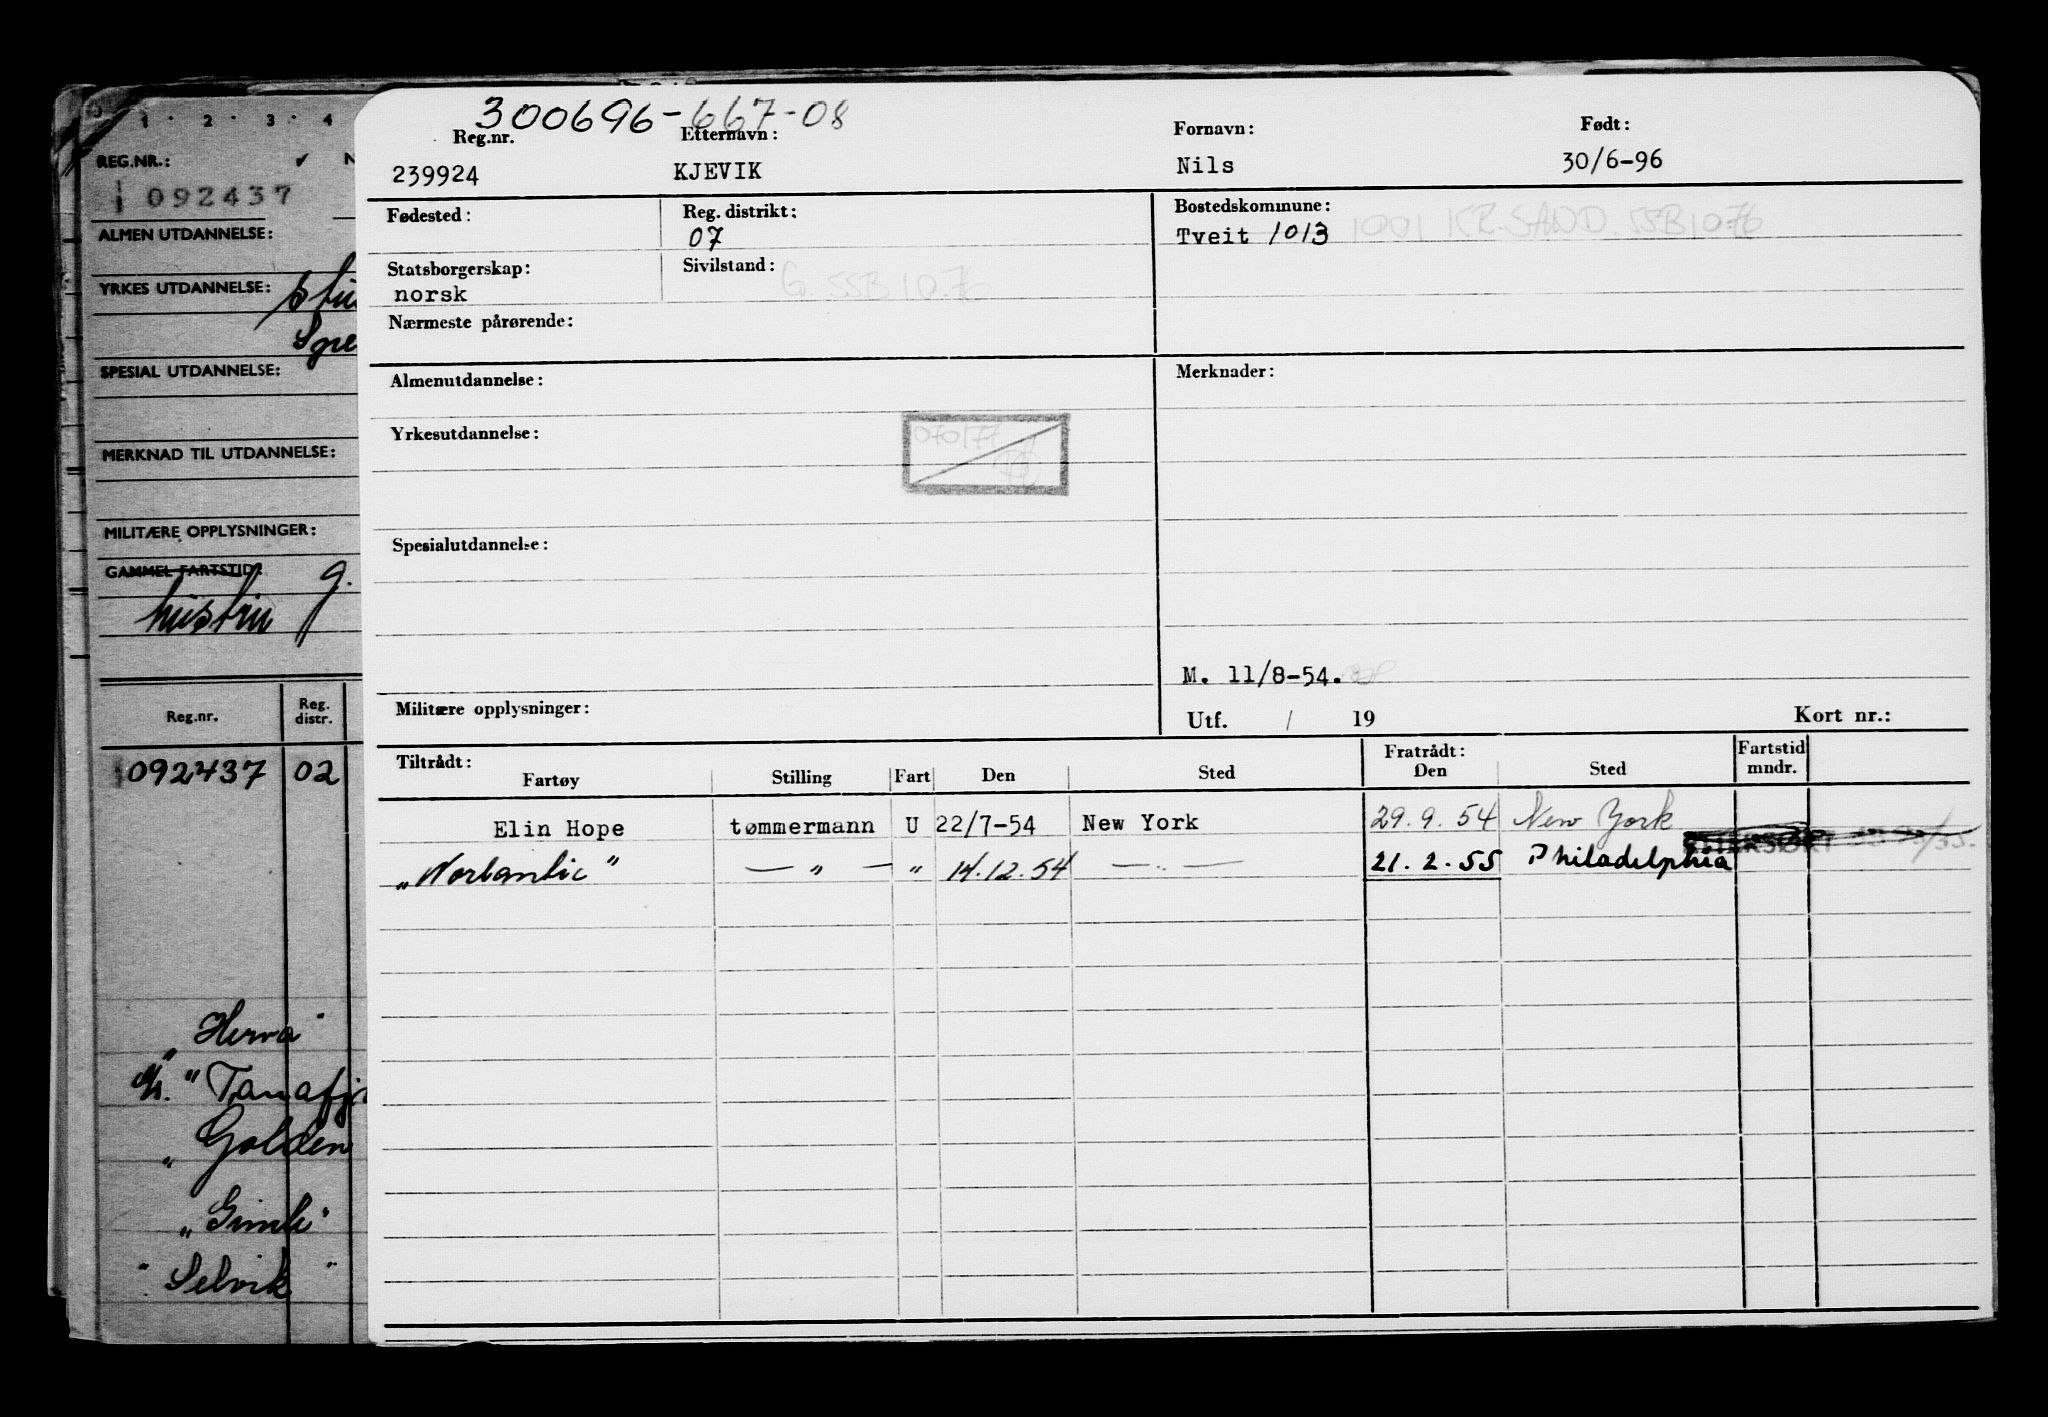 1 · 2 · 3 · 4
REG.NR.:
092437
ALMEN UTDANNELSE:
YRKES UTDANNELSE:
SPESIAL UTDANNELSE:
MERKNAD TIL UTDANNELSE:
MILITÆRE OPPLYSNINGER:
GAMMEL FARTSTID:
Reg.nr. Reg. distr.
092437 02
„Herva"
"Tanafj
„Golden
„Gimle"
"Selvik"
300696-667-08
Reg.nr. Etternavn: Fornavn: Født:
239924 KJEVIK Nils 30/6-96
Fødested: Reg. distrikt: Bostedskommune:
07 Tveit 1013 1001 KR.SAND. SSB1076
Statsborgerskap: Sivilstand:
norsk G. SSB10.76
Nærmeste pårørende:
Almenutdannelse: Merknader:
Yrkesutdannelse:
Spesialutdannelse:
M. 11/8-54.
Militære opplysninger: Utf. / 19 Kort nr.:
Tiltrådt: Fratrådt: Fartstid
Fartøy Stilling Fart Den Sted Den Sted mndr.
Elin Hope tømmermann U 22/7-54 New York 29.9.54 New York
„Norlantic" — " — " 14.12.54 — " — 21.2.55 Philadelphia